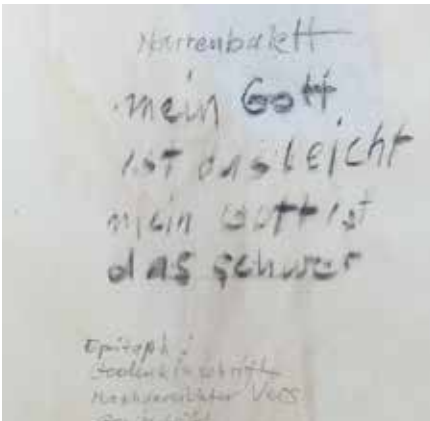 Narrenbalett
mein Gott
ist das leicht
mein Gott ist
das schwer
Epitaph:
Gedenkinschrift
Vers